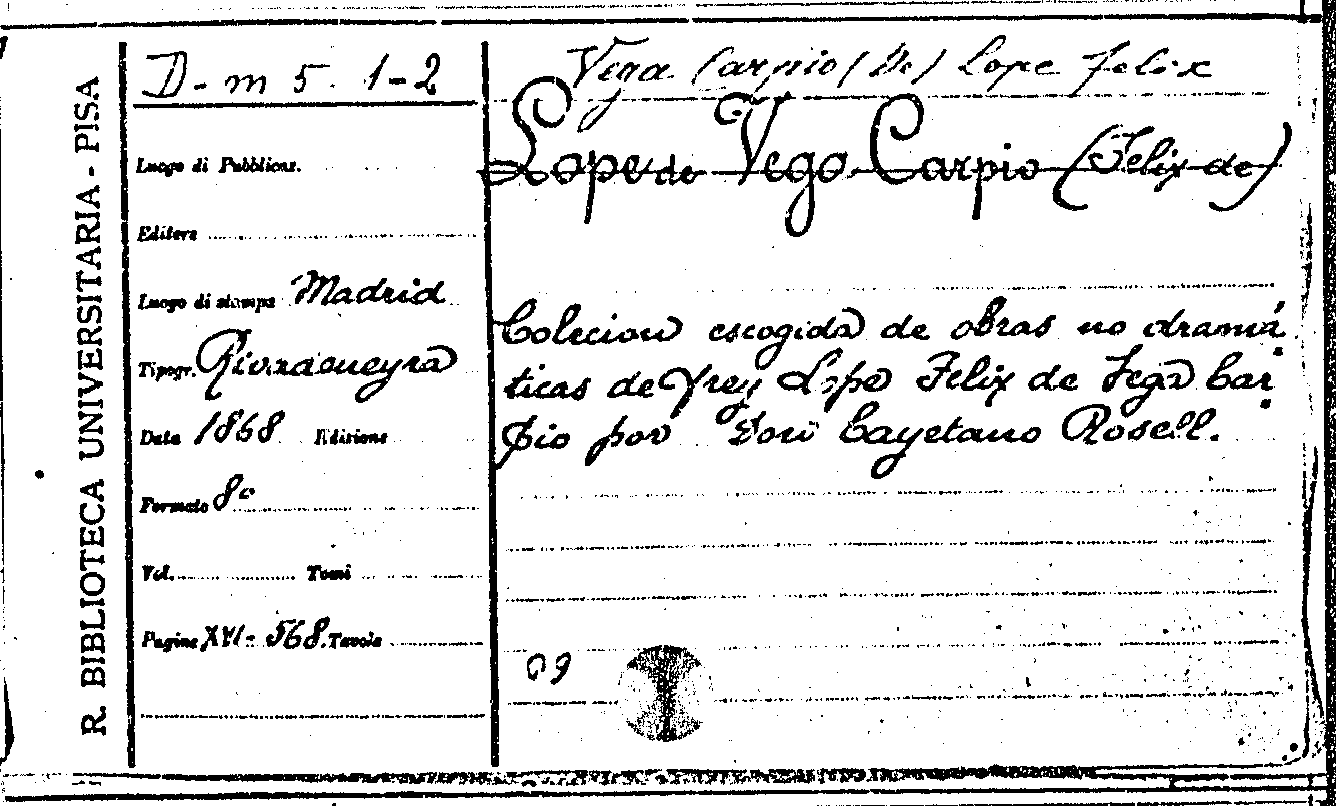 R. BIBLIOTECA UNIVERSITARIA - PISA
D-m 5. 1-2
Luogo di Pubblicaz.
Editore
Luogo di stampa Madrid
Tipogr. Rivadeneyra
Data 1868 Edizione
Formato 8°
Vol. Tomi
Pagine XVI- 568. Tavole
Vega Carpio (De) Lope Felix
Lope de Vega Carpio (Felix de)
Colecion escogida de obras no dramá-
ticas de Frey Lope Felix de Vega Car-
pio por Don Cayetano Rosell.
09